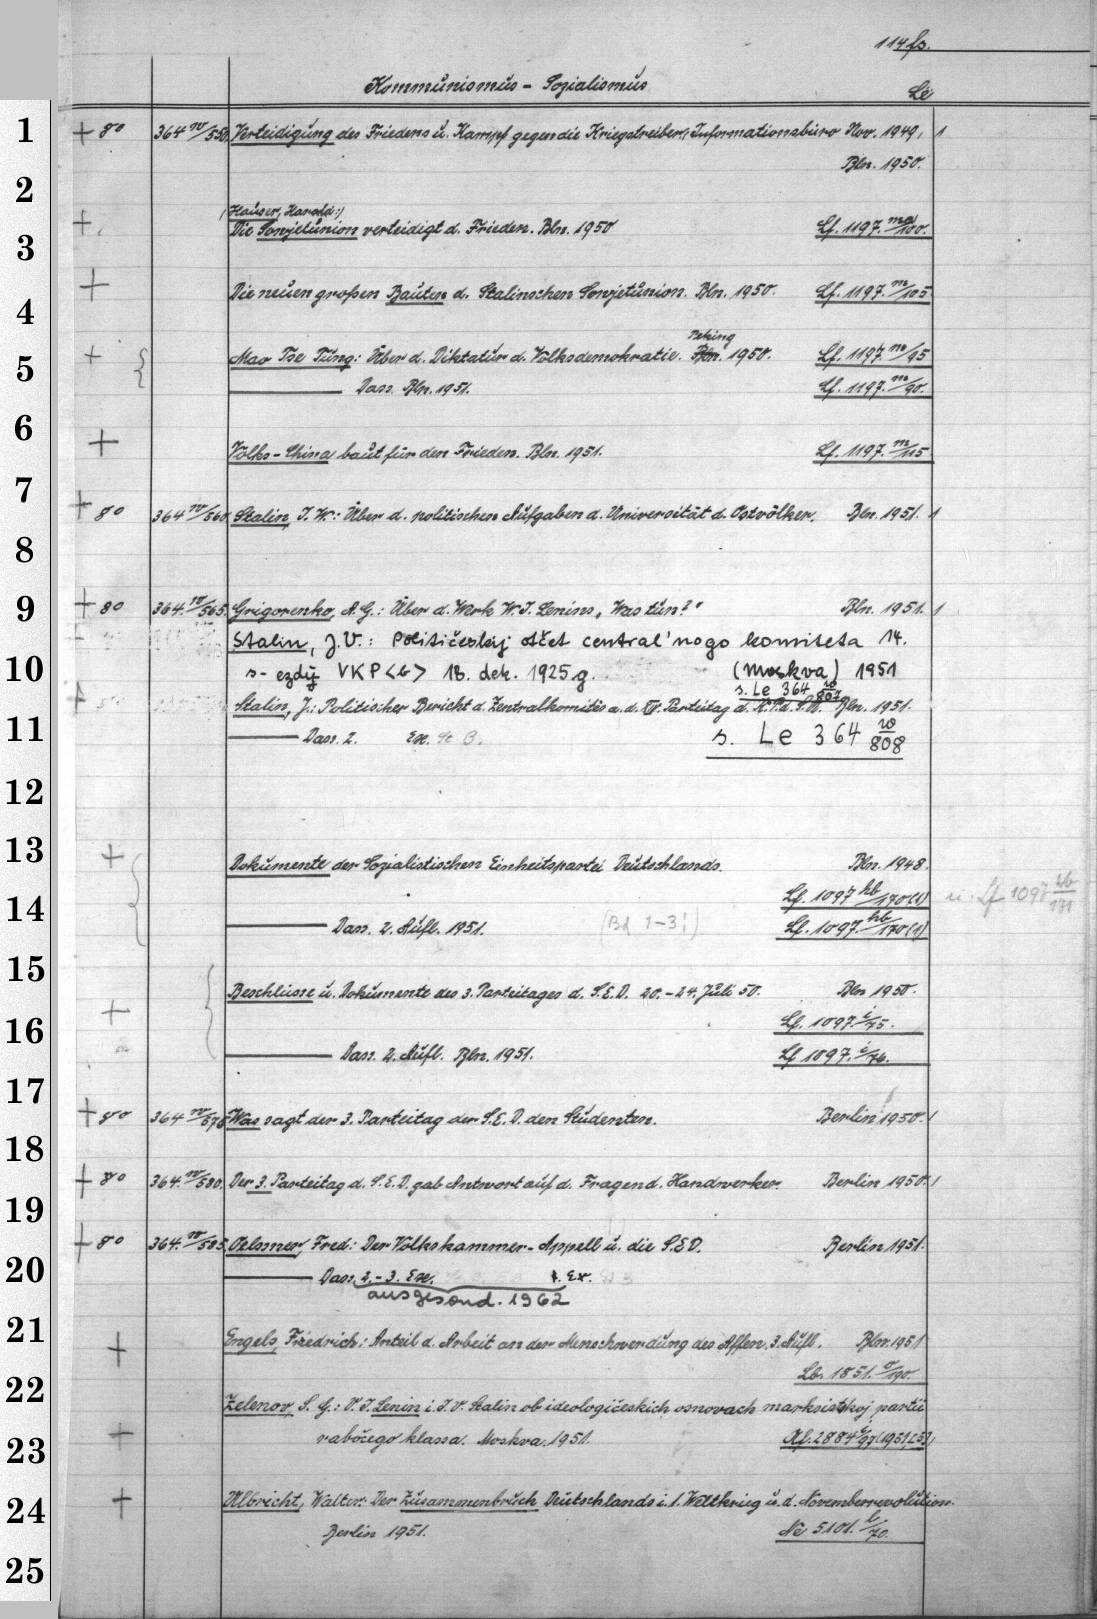 114 fs.
Kommunismus - Sozialismus
Le
1 + 8° 364 w/550. Verteidigung des Friedens u. Kampf gegen die Kriegstreiber, Informationsbüro Nov. 1949, 1
Bln. 1950.
2
(Hauser, Harald:)
3 + Die Sowjetunion verteidigt d. Frieden. Bln. 1950 Lf. 1197. ma/100.
4 + Die neuen großen Bauten d. Stalinschen Sowjetunion. Bln. 1950. Lf. 1197. m/105.
Peking
5 + Mao Tse Tung: Über d. Diktatur d. Volksdemokratie. Bln. 1950. Lf. 1197. m/95
Dass. Bln. 1951. Lf. 1197. m/90.
6 + Volks-China baut für den Frieden. Bln. 1951. Lf. 1197. m/115
7 + 8° 364 w/560. Stalin, J. W.: Über d. politischen Aufgaben d. Universität d. Ostvölker. Bln. 1951. 1
8
9 + 8° 364. w/565. Grigorenko, A. G.: Über d. Werk W. I. Lenins „Was tun?" Bln. 1951. 1
Stalin, J. V.: Političeskij otčet central'nogo komiteta 14.
10 s-ezdu VKP<b> 18. dek. 1925 g. (Moskva) 1951
s. Le 364 w/807
+ Stalin, J.: Politischer Bericht d. Zentralkomités a. d. XIV. Parteitag d. K.P.d.S.U. Bln. 1951.
11 Dass. 2. Ex. s. Le 364 w/808
12
13 + Dokumente der Sozialistischen Einheitspartei Deutschlands. Bln. 1948.
14 Lf. 1097 hb/170(1) u. Lf 1097
Dass. 2. Aufl. 1951. (Bd 1-3!) Lf. 1097. hb/170(1)
15
+ Beschlüsse u. Dokumente des 3. Parteitages d. S.E.D. 20.-24. Juli 50. Bln 1950.
16 Lf. 1097. i/75.
Dass. 2. Aufl. Bln. 1951. Lf 1097. i/76.
17 + 8° 364 w/575 Was sagt der 3. Parteitag der S.E.D. den Studenten. Berlin 1950. 1
18 + 8° 364. w/580. Der 3. Parteitag d. S.E.D. gab Antwort auf d. Fragen d. Handwerker. Berlin 1950. 1
19 + 8° 364. w/585. Oelssner, Fred: Der Volkskammer-Appell u. die S.E.D. Berlin 1951.
20 Dass. 2.-3. Ex. 4. Ex.
ausgesond. 1962
21 + Engels, Friedrich: Anteil d. Arbeit an der Menschwerdung des Affen. 3. Aufl. Bln. 1951
22 Lb. 1851. o/190.
Zelenov, S. G.: V. I. Lenin i I. V. Stalin ob ideologičeskich osnovach marksistskoj partii
23 + rabočego klassa. Moskva. 1951. Af. 2884 (1951,[5])
24 + Ulbricht, Walter: Der Zusammenbruch Deutschlands i. 1. Weltkrieg u. d. Novemberrevolution.
Berlin 1951. Ne 5101. b/70.
25